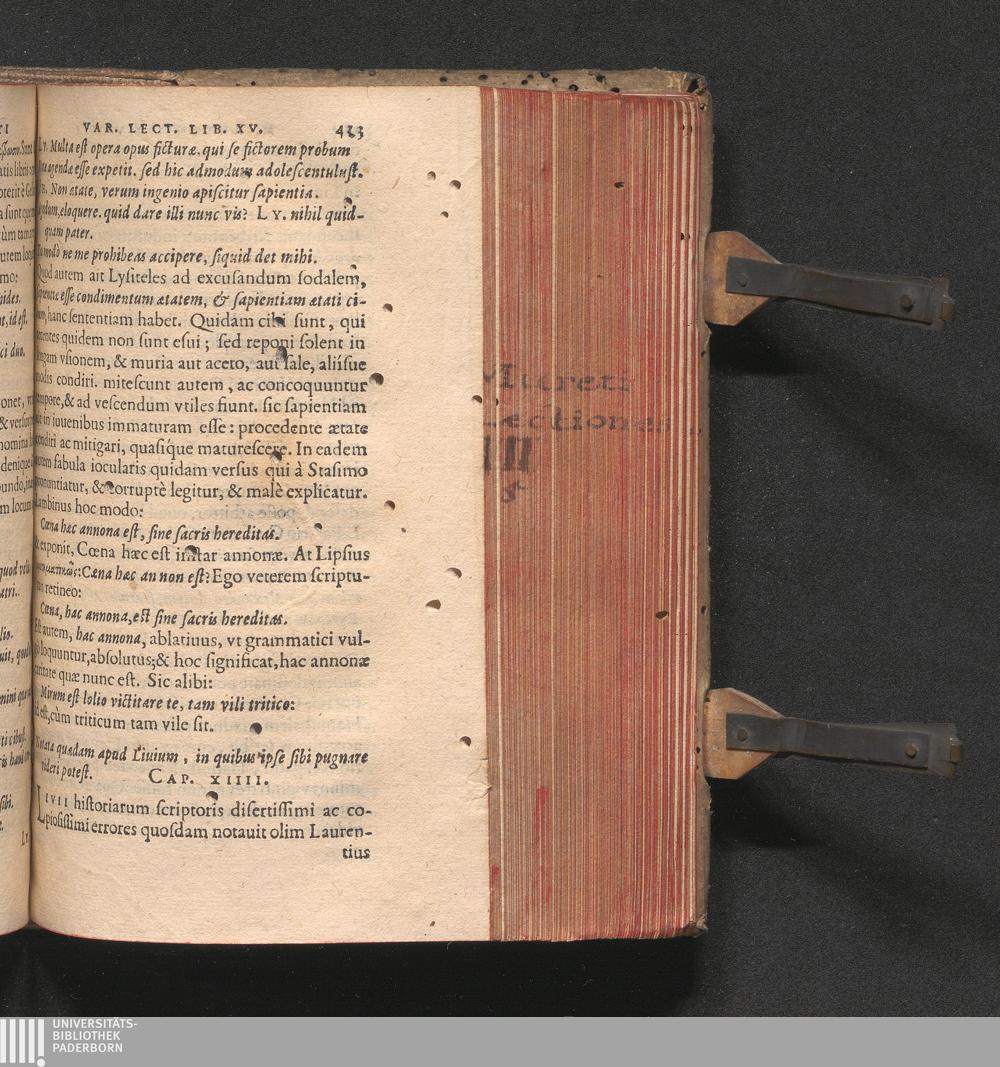 VAR. LECT. LIB. XV. 413
Ly. Multa est opera opus ficturæ, qui se fictorem probum
agendæ esse expetit. sed hic admodum adolescentulust.
Non ætate, verum ingenio apiscitur sapientia.
eloquere. quid dare illi nunc vis? LY. nihil quid-
quam pater.
modò ne me prohibeas accipere, siquid det mihi.
Quod autem ait Lysiteles ad excusandum sodalem,
esse condimentum ætatem, & sapientiam ætati ci-
bum, hanc sententiam habet. Quidam cibi sunt, qui
quidem non sunt esui; sed reponi solent in
longam vsionem, & muria aut aceto, aut sale, aliísue
modis conditi. mitescunt autem, ac concoquuntur
tempore, & ad vescendum vtiles fiunt. sic sapientiam
in iuuenibus immaturam esse: procedente ætate
conditi ac mitigari, quasíque maturescere. In eadem
autem fabula iocularis quidam versus qui à Stasimo
pronuntiatur, & corruptè legitur, & malè explicatur.
Lambinus hoc modo:
Cœna hæc annona est, sine sacris hereditas.
& exponit, Cœna hæc est instar annonæ. At Lipsius
Cæna hæc an non est? Ego veterem scriptu-
ram retineo:
Cœna, hac annona, est sine sacris hereditas.
Est autem, hac annona, ablatiuus, vt grammatici vul-
gò loquuntur, absolutus; & hoc significat, hac annonæ
caritate quæ nunc est. Sic alibi:
Mirum est lolio victitare te, tam vili tritico:
id est, cùm triticum tam vile sit.
Notata quædam apud Liuium, in quibus ipse sibi pugnare
videri potest. CAP. XIIII.
LIVII historiarum scriptoris disertissimi ac co-
piosissimi errores quosdam notauit olim Lauren-
tius
Mureti
Lectiones
III
5
UNIVERSITÄTS-
BIBLIOTHEK
PADERBORN